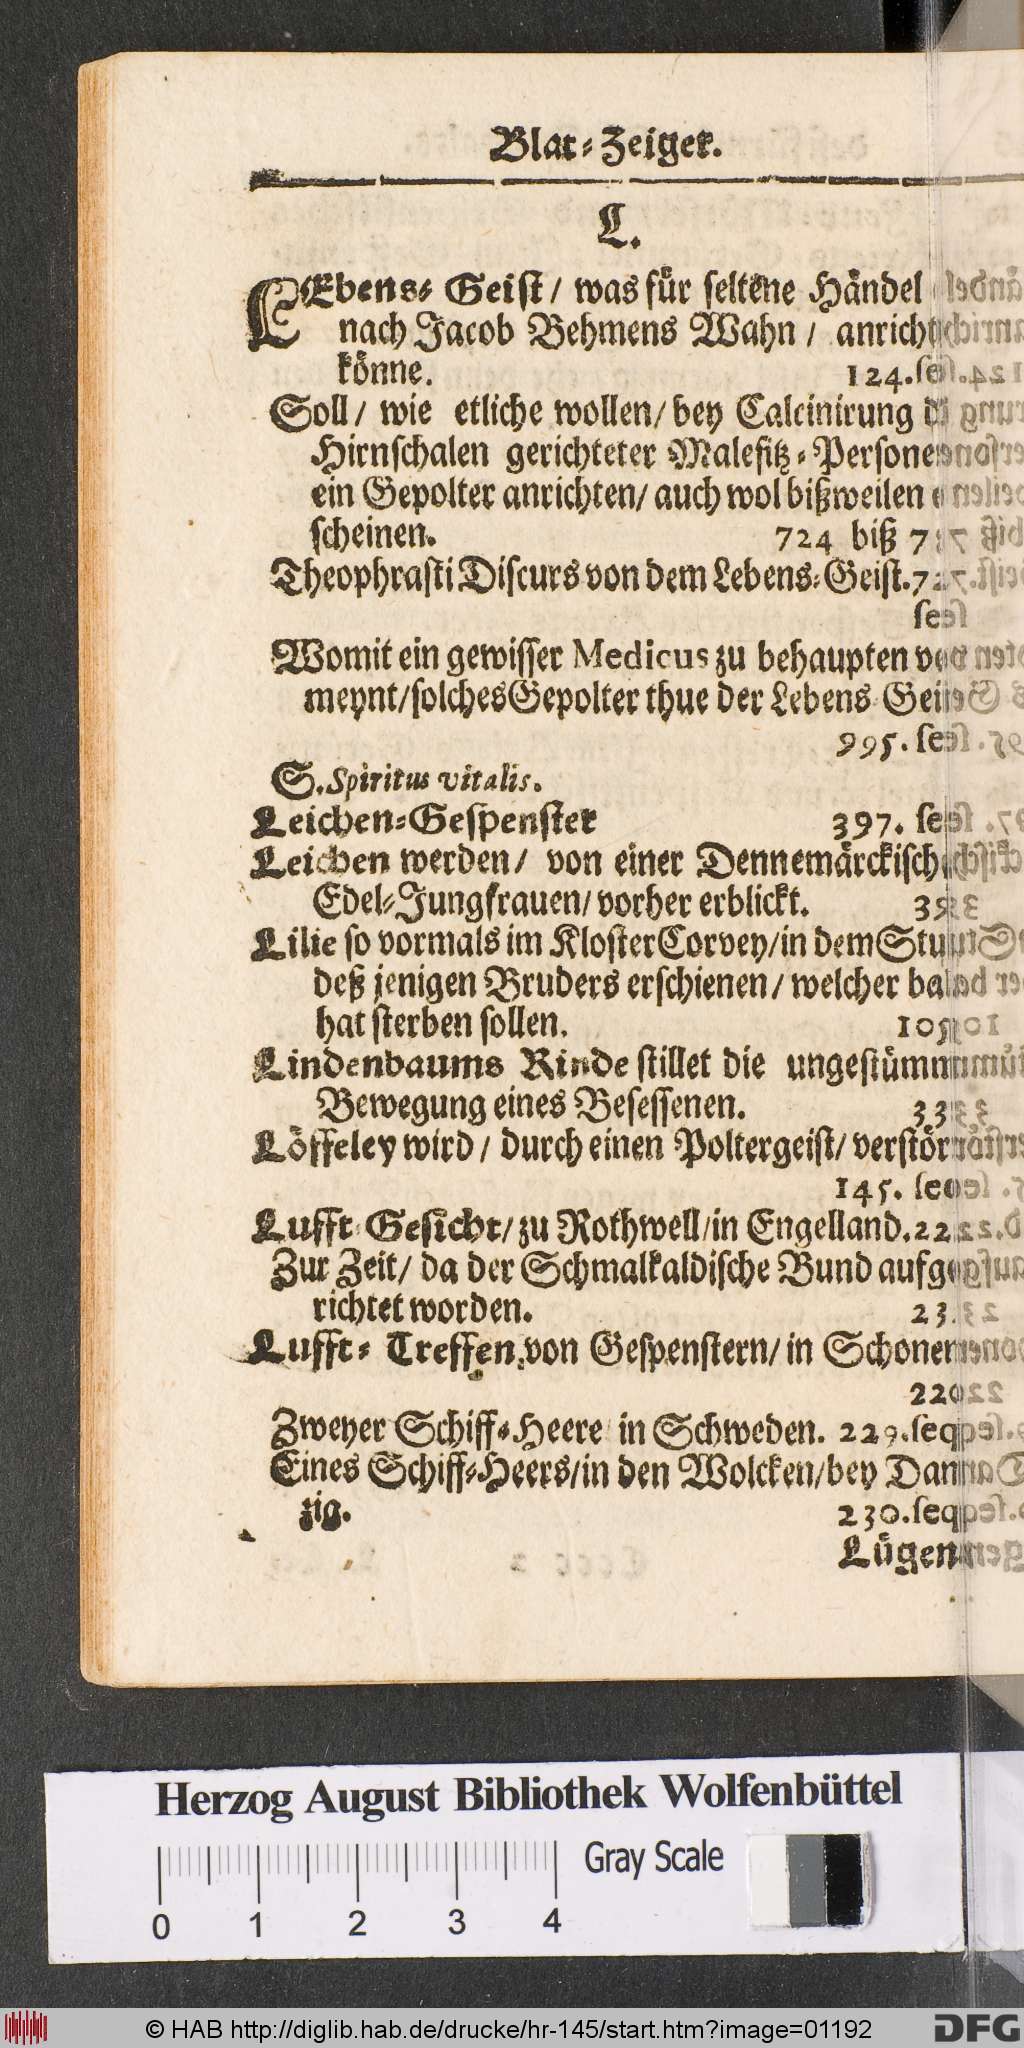 Blat-Zeiger.
L.
LEbens-Geist / was für seltene Händel
nach Jacob Behmens Wahn / anricht
könne. 124. seq.
Soll / wie etliche wollen / bey Calcinirung
Hirnschalen gerichteter Malefitz-Persone
ein Gepolter anrichten / auch wol bißweilen
scheinen. 724 biß
Theophrasti Discurs von dem Lebens-Geist.
Womit ein gewisser Medicus zu behaupten
meynt / solches Gepolter thue der Lebens Gei
995. se
S. Spiritus vitalis.
Leichen-Gespenster 397. se
Leichen werden / von einer Dennemärckisch
Edel-Jungfrauen / vorher erblickt.
Lilie so vormals im Kloster Corvey / in dem Stu
deß jenigen Bruders erschienen / welcher bal
hat sterben sollen.
Lindenbaums Rinde stillet die ungestümm
Bewegung eines Besessenen.
Löffeley wird / durch einen Poltergeist / verstör
145. se
Lufft Gesicht / zu Rothwell / in Engelland.
Zur Zeit / da der Schmalkaldische Bund aufge
richtet worden.
Lufft-Treffen, von Gespenstern / in Schonen
220
Zweyer Schiff-Heere in Schweden. 229. seqq
Eines Schiff-Heers / in den Wolcken / bey Dan
zig. 230. seqq
Lügen
Herzog August Bibliothek Wolfenbüttel
Gray Scale
0 1 2 3 4
© HAB http://diglib.hab.de/drucke/hr-145/start.htm?image=01192
DFG